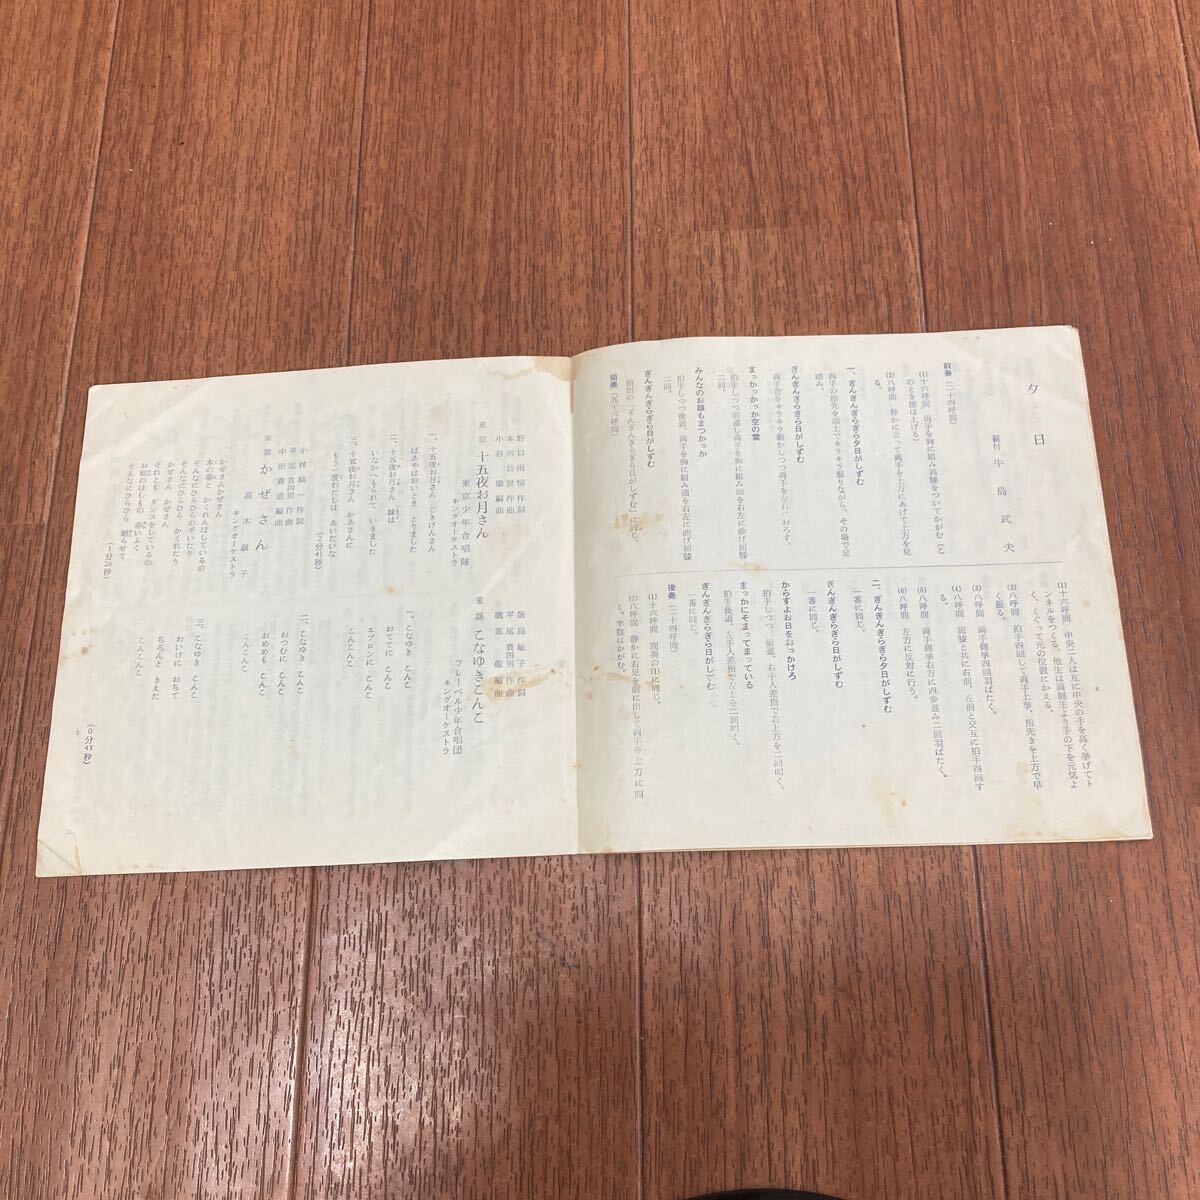 夕日
振付 牛島武夫
前奏(二十四呼間)
(1)十六呼間 両手を胸に組み両膝をついてかがむ(と
のとき腰は上げる)
(5)八呼間 静かに立って両手を上方にあげて上方を見
る。
一、ぎんぎんぎらぎら夕日がしずむ
両手の指先を頭上でキラキラ振りながら、その場で足
踏み。
ぎんぎんぎらぎら日がしずむ
両手首をキラキラ動かしつつ両手を左右におろす。
まっかっかっか空の雲
拍手しつつ前進し両手を胸に組み頭を右左に曲げ屈膝
二回。
みんなのお顔もまっかっか
拍手しつつ後退、両手を胸に組み頭を右左に曲げ屈膝
二回。
ぎんぎんぎらぎら日がしずむ
前出の「ぎんぎんぎらぎら日がしずむ」に同じ。
間奏(五十六呼間)
(1)十六呼間 中央二人は互に中央の手を高く挙げてト
ンネルをつくる。他生は両側生より手の下を元気よ
く、くぐって元の位置にかえる。
(2)八呼間 拍手四回して両手上挙、指先きを上方で早
く振る。
(3)八呼間 両手側挙四回羽ばたく。
(4)八呼間 屈膝と共に右前、左前と交互に拍手四回す
る。
(5)八呼間 両手側挙右方に四歩進み二回羽ばたく。
(6)八呼間 左方に反対に行う。
二、ぎんぎんぎらぎら夕日がしずむ
一番に同じ。
ぎんぎんぎらぎら日がしずむ
一番に同じ。
からすよお日をおっかけろ
拍手しつつ前進、右手人差指で右上方を二回叩く。
まっかにそまってまっている
拍手後退。左手人差指で左上を二回叩く。
ぎんぎんぎらぎら日がしずむ
一番に同じ。
後奏(二十四呼間)
(1)十六呼間 間奏の(1)に同じ。
(2)八呼間 静かに右足を前に出して両手を上方に開
く。半数はかがむ。
野口雨情作詞
本居長世作曲
小谷 編曲
童謡 十五夜お月さん
東京少年合唱隊
キングオーケストラ
一、十五夜お月さん ごきげんさん
ばあやはおいとま とりました
二、十五夜お月さん 妹は
いなかへもられて いきました
三、十五夜お月さん かあさんに
もう一度わたしは あいたいな
(2分41秒)
小林純一作詞
平尾貴四男作曲
中田喜直編曲
童謡 かぜさん
高木淑子
キングオーケストラ
かぜさんかぜさん
木の葉と かくれんぼしているの
そんなにひらひらのぞいたり
そんなにひらひら かくれたり
かぜさん かぜさん
それとも ダンスをしているの
お庭のほしもの 赤いふく
そんなにひらひら 踊らせて
(1分26秒)
飯島敏子作詞
平尾貴四男作曲
磯部俶編曲
童謡 こなゆきこんこ
フレーベル少年合唱団
キングオーケストラ
一、こなゆき こんこ
おててに こんこ
エプロンに こんこ
こんこんこ
二、こなゆき こんこ
おつむに こんこ
おめめも こんこ
こんこんこ
三、こなゆき こんこ
おいけに おちて
ちろんと きえた
こんこんこ
(0分43秒)